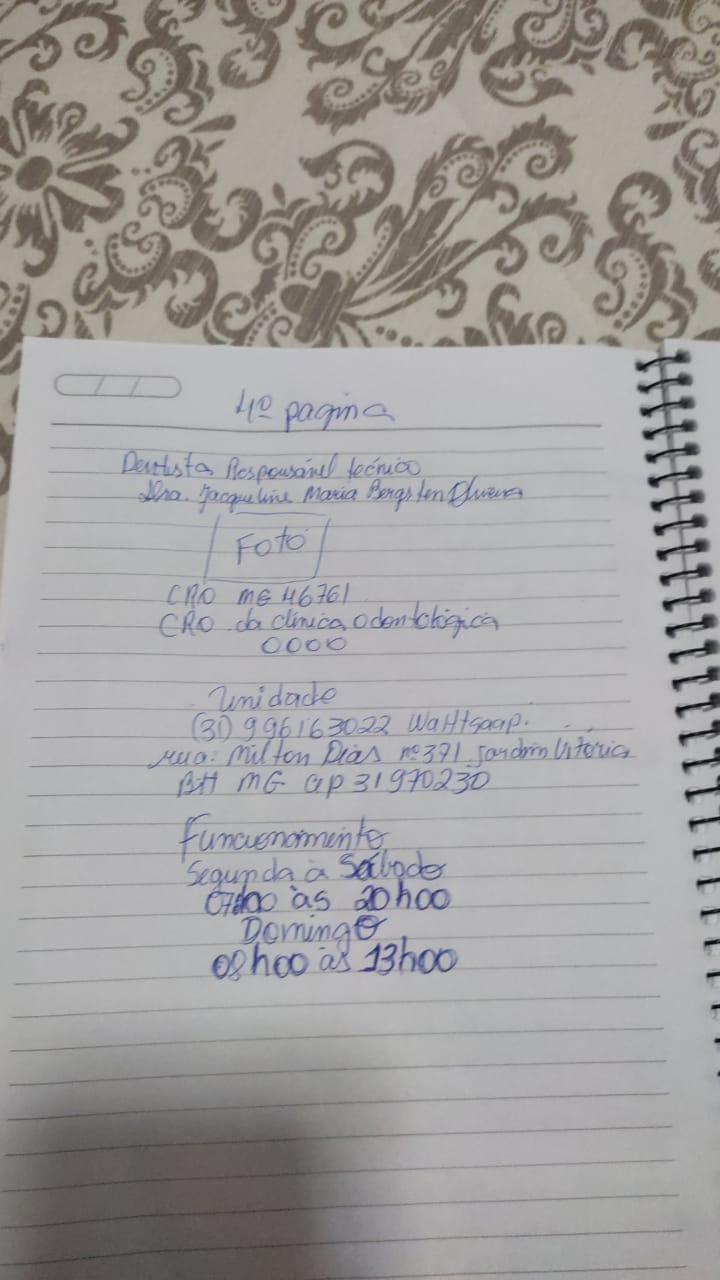 4º pagina
Dentista Responsável técnico
Dra. Jacqueline Maria Bergsten Oliveira
Foto
CRO MG 46761
CRO da clínica Odontológica
0000
Unidade
(31) 996163022 Wahtsaap.
rua: Milton Dias nº 371 Jardim Vitória
BH MG cep 31970230
Funcionamento
Segunda à Sábado
07h00 às 20h00
Domingo
08h00 às 13h00